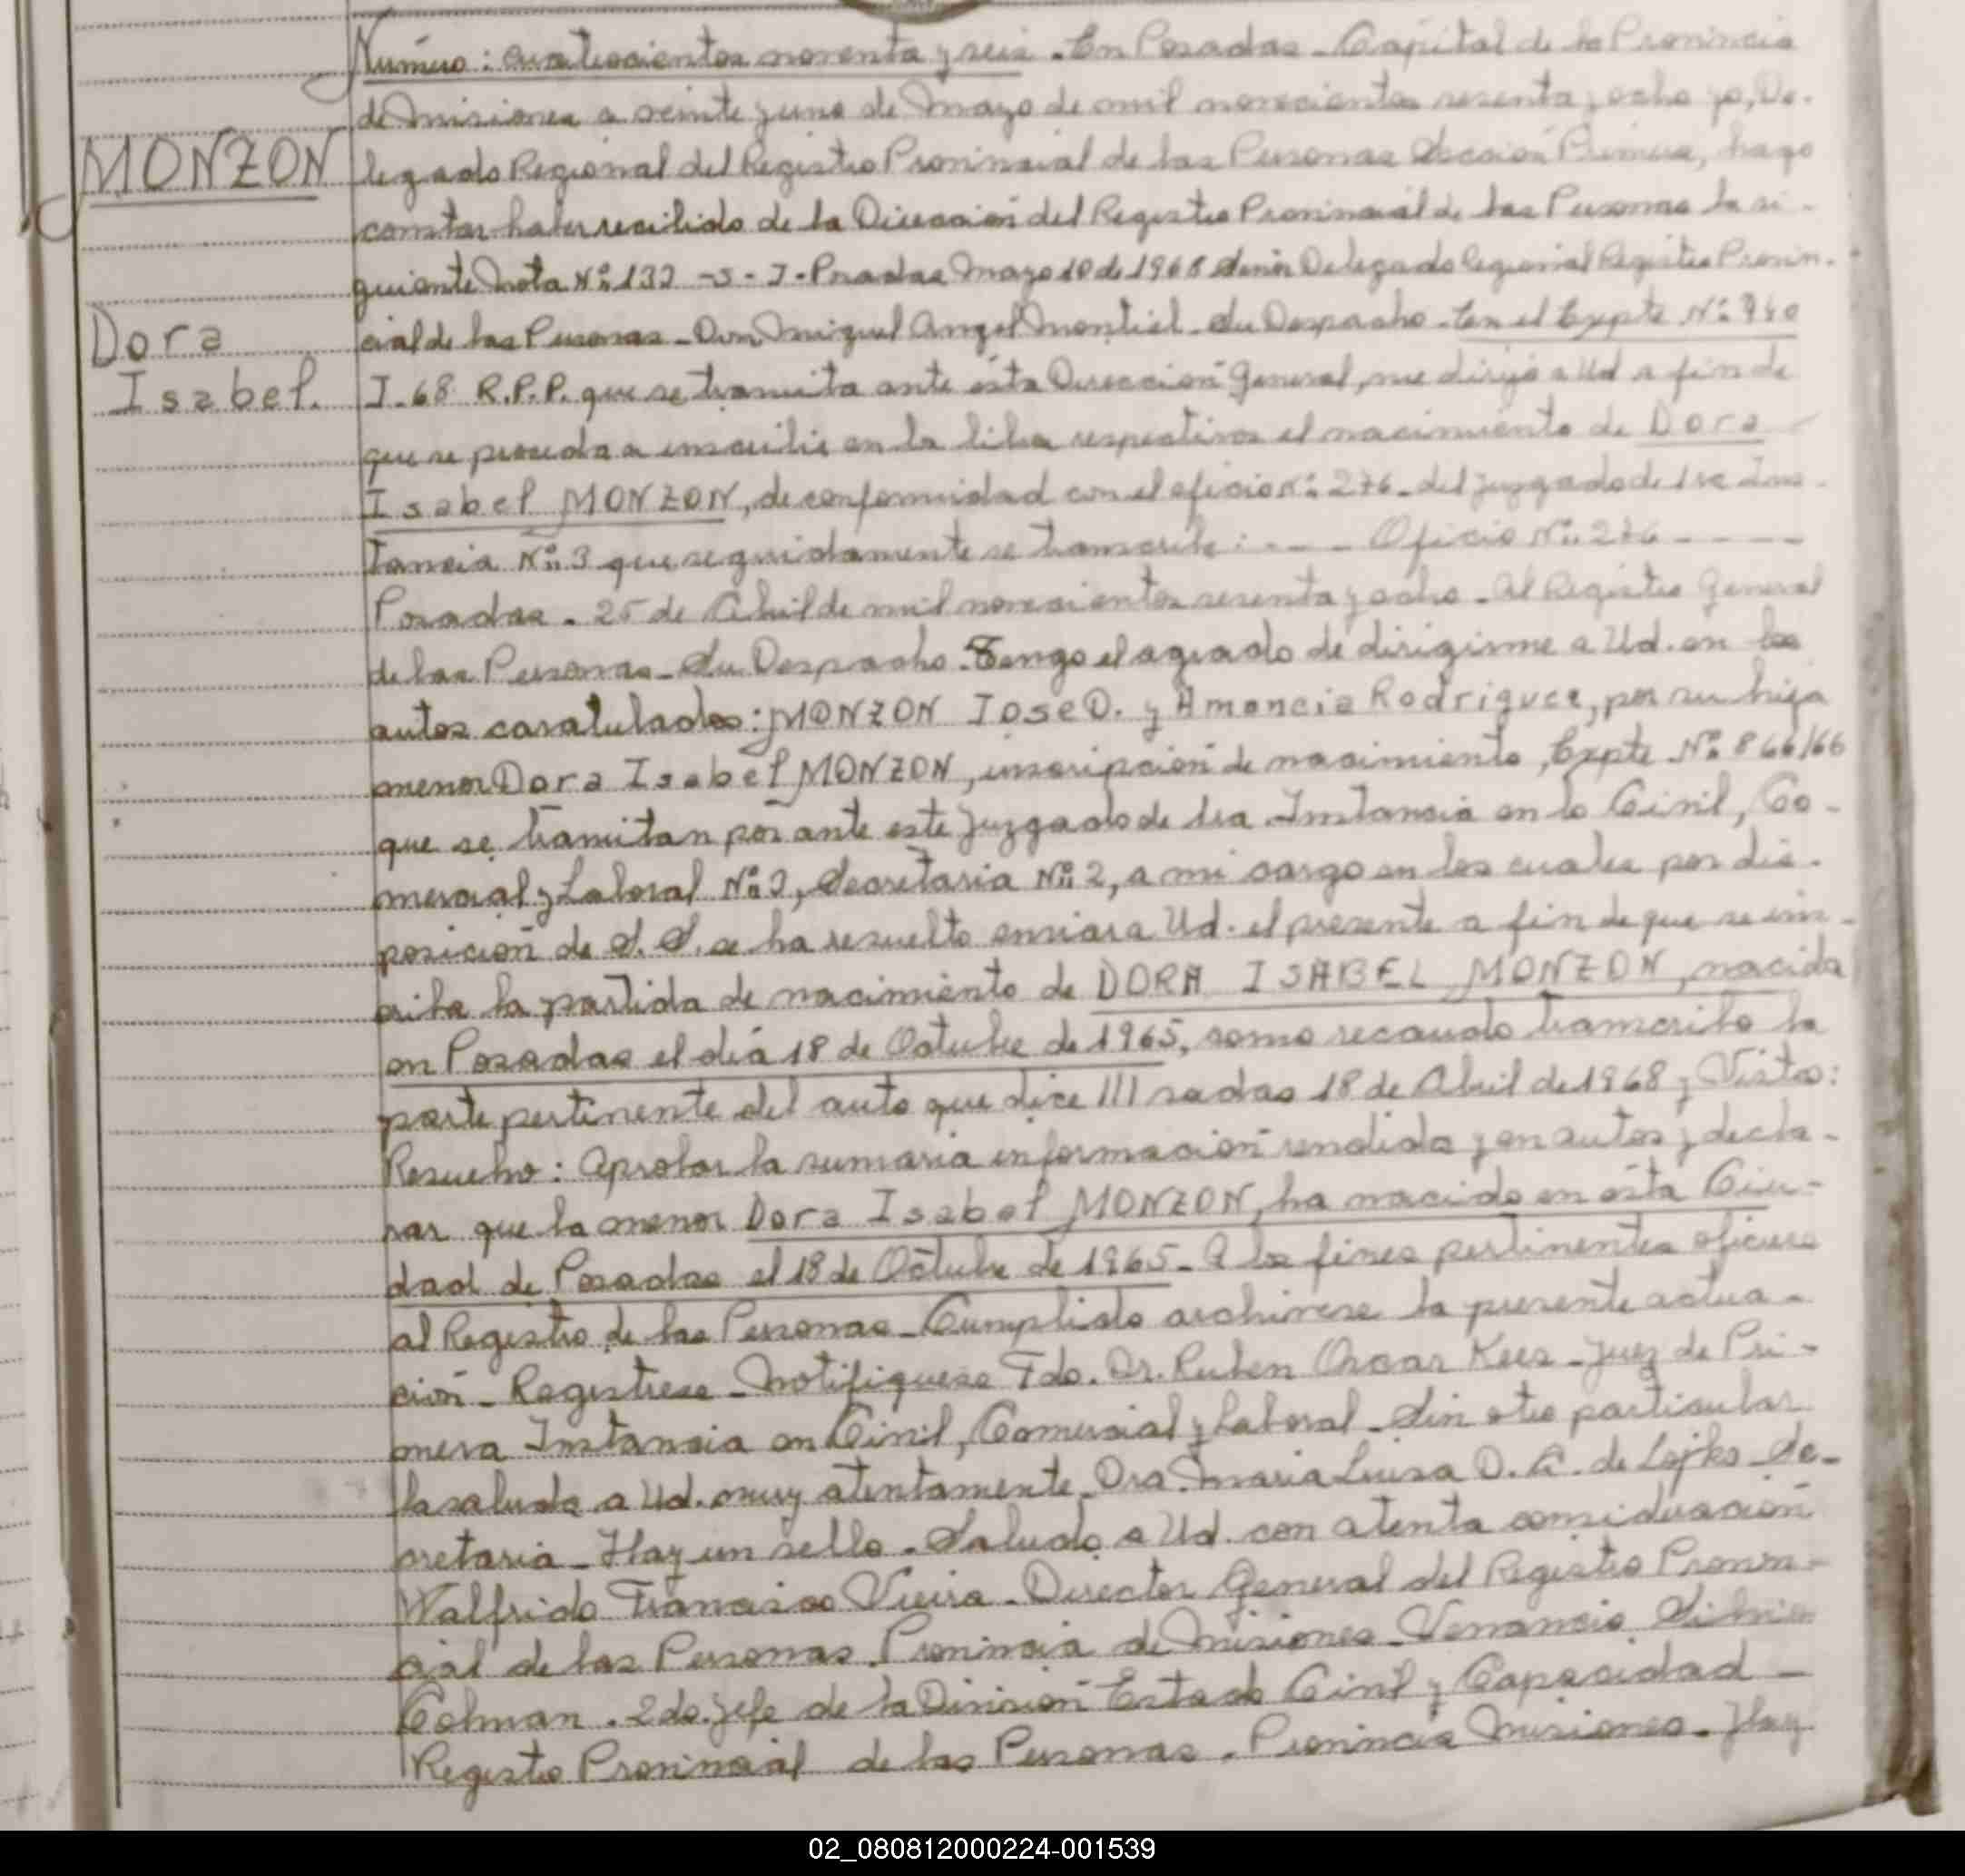 Número: cuatrocientos noventa y seis. En Posadas - Capital de la Provincia
de Misiones a veinte y uno de Mayo de mil novecientos sesenta y ocho yo, De-
MONZON
legado Regional del Registro Provincial de las Personas Sección Primera, hago
constar haber recibido de la Dirección del Registro Provincial de las Personas la si-
guiente Nota Nº 132 -S- J- Posadas Mayo 10 de 1968 Señor Delegado Regional Registro Provin-
Dora
cial de las Personas - Don Miguel Angel Montiel - Su Despacho - En el Expte Nº 940
Isabel.
J-68 R.P.P. que se tramita ante ésta Dirección General, me dirijo a Ud a fin de
que se proceda a inscribir en la libro respectivos el nacimiento de Dora
Isabel MONZON, de conformidad con el oficio Nº 276 - del Juzgado de 1ra Ins-
tancia Nº 3 que seguidamente se transcribe: - - - Oficio Nº 276 - - - -
Posadas. 25 de Abril de mil novecientos sesenta y ocho - Al Registro General
de las Personas - Su Despacho. Tengo el agrado de dirigirme a Ud. en los
autos caratulados: MONZON Jose D. y Amancia Rodriguez, por su hija
menor Dora Isabel MONZON, inscripción de nacimiento, Expte. Nº 866/66
que se tramitan por ante este Juzgado de 1ra Instancia en lo Civil, Co-
mercial y Laboral Nº 3, Secretaria Nº 2, a mi cargo en los cuales por dis-
posición de S. S. se ha resuelto enviar a Ud. el presente a fin de que se ins-
criba la partida de nacimiento de DORA ISABEL MONZON, nacida
en Posadas el día 18 de Octubre de 1965, como recaudo transcribo la
parte pertinente del auto que dice ///sadas 18 de Abril de 1968 y Vistos:
Resuelvo: Aprobar la sumaria información rendida y en autos y decla-
rar que la menor Dora Isabel MONZON, ha nacido en ésta Ciu-
dad de Posadas el 18 de Octubre de 1965 - A los fines pertinentes ofíciese
al Registro de las Personas - Cumplido archívese la presente actua-
ción - Registrese - Notifiquese Fdo. Dr. Ruben Oscar Kees - Juez de Pri-
mera Instancia en Civil, Comercial y Laboral - Sin otro particular
la saluda a Ud. muy atentamente - Dra. Maria Luisa D. A. de Lojko - Se-
cretaria - Hay un sello. Saludo a Ud. con atenta consideración
Walfrido Francisco Vieira - Director General del Registro Provin-
cial de las Personas. Provincia de Misiones - Venancio
Colman. 2do. Jefe de la División Estado Civil y Capacidad -
Registro Provincial de las Personas. Provincia Misiones - Hay
02_080812000224-001539